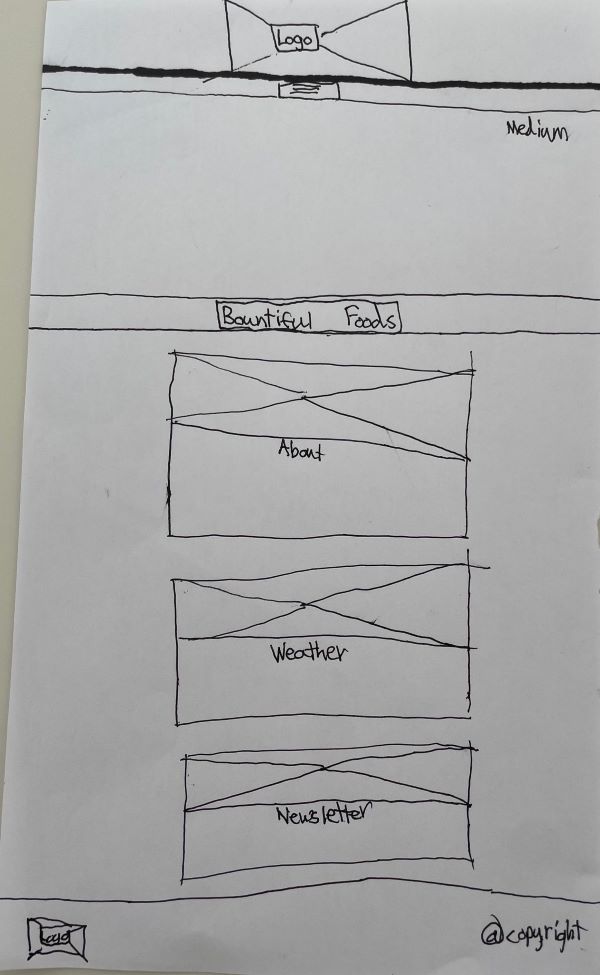 Logo
Medium
Bountiful Foods
About
Weather
Newsletter
Logo
@copyright